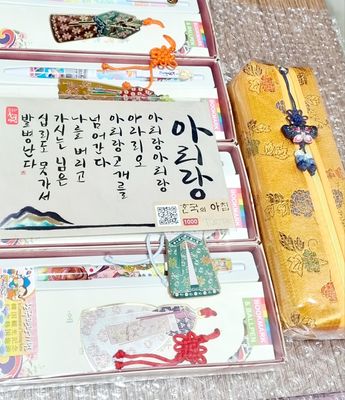 아리랑
아리랑 아리랑
아라리오
아리랑고개를
넘어간다
나를 버리고
가시는 님은
십리도 못가서
발병난다
한국의 아침
1000
BOOKMARK